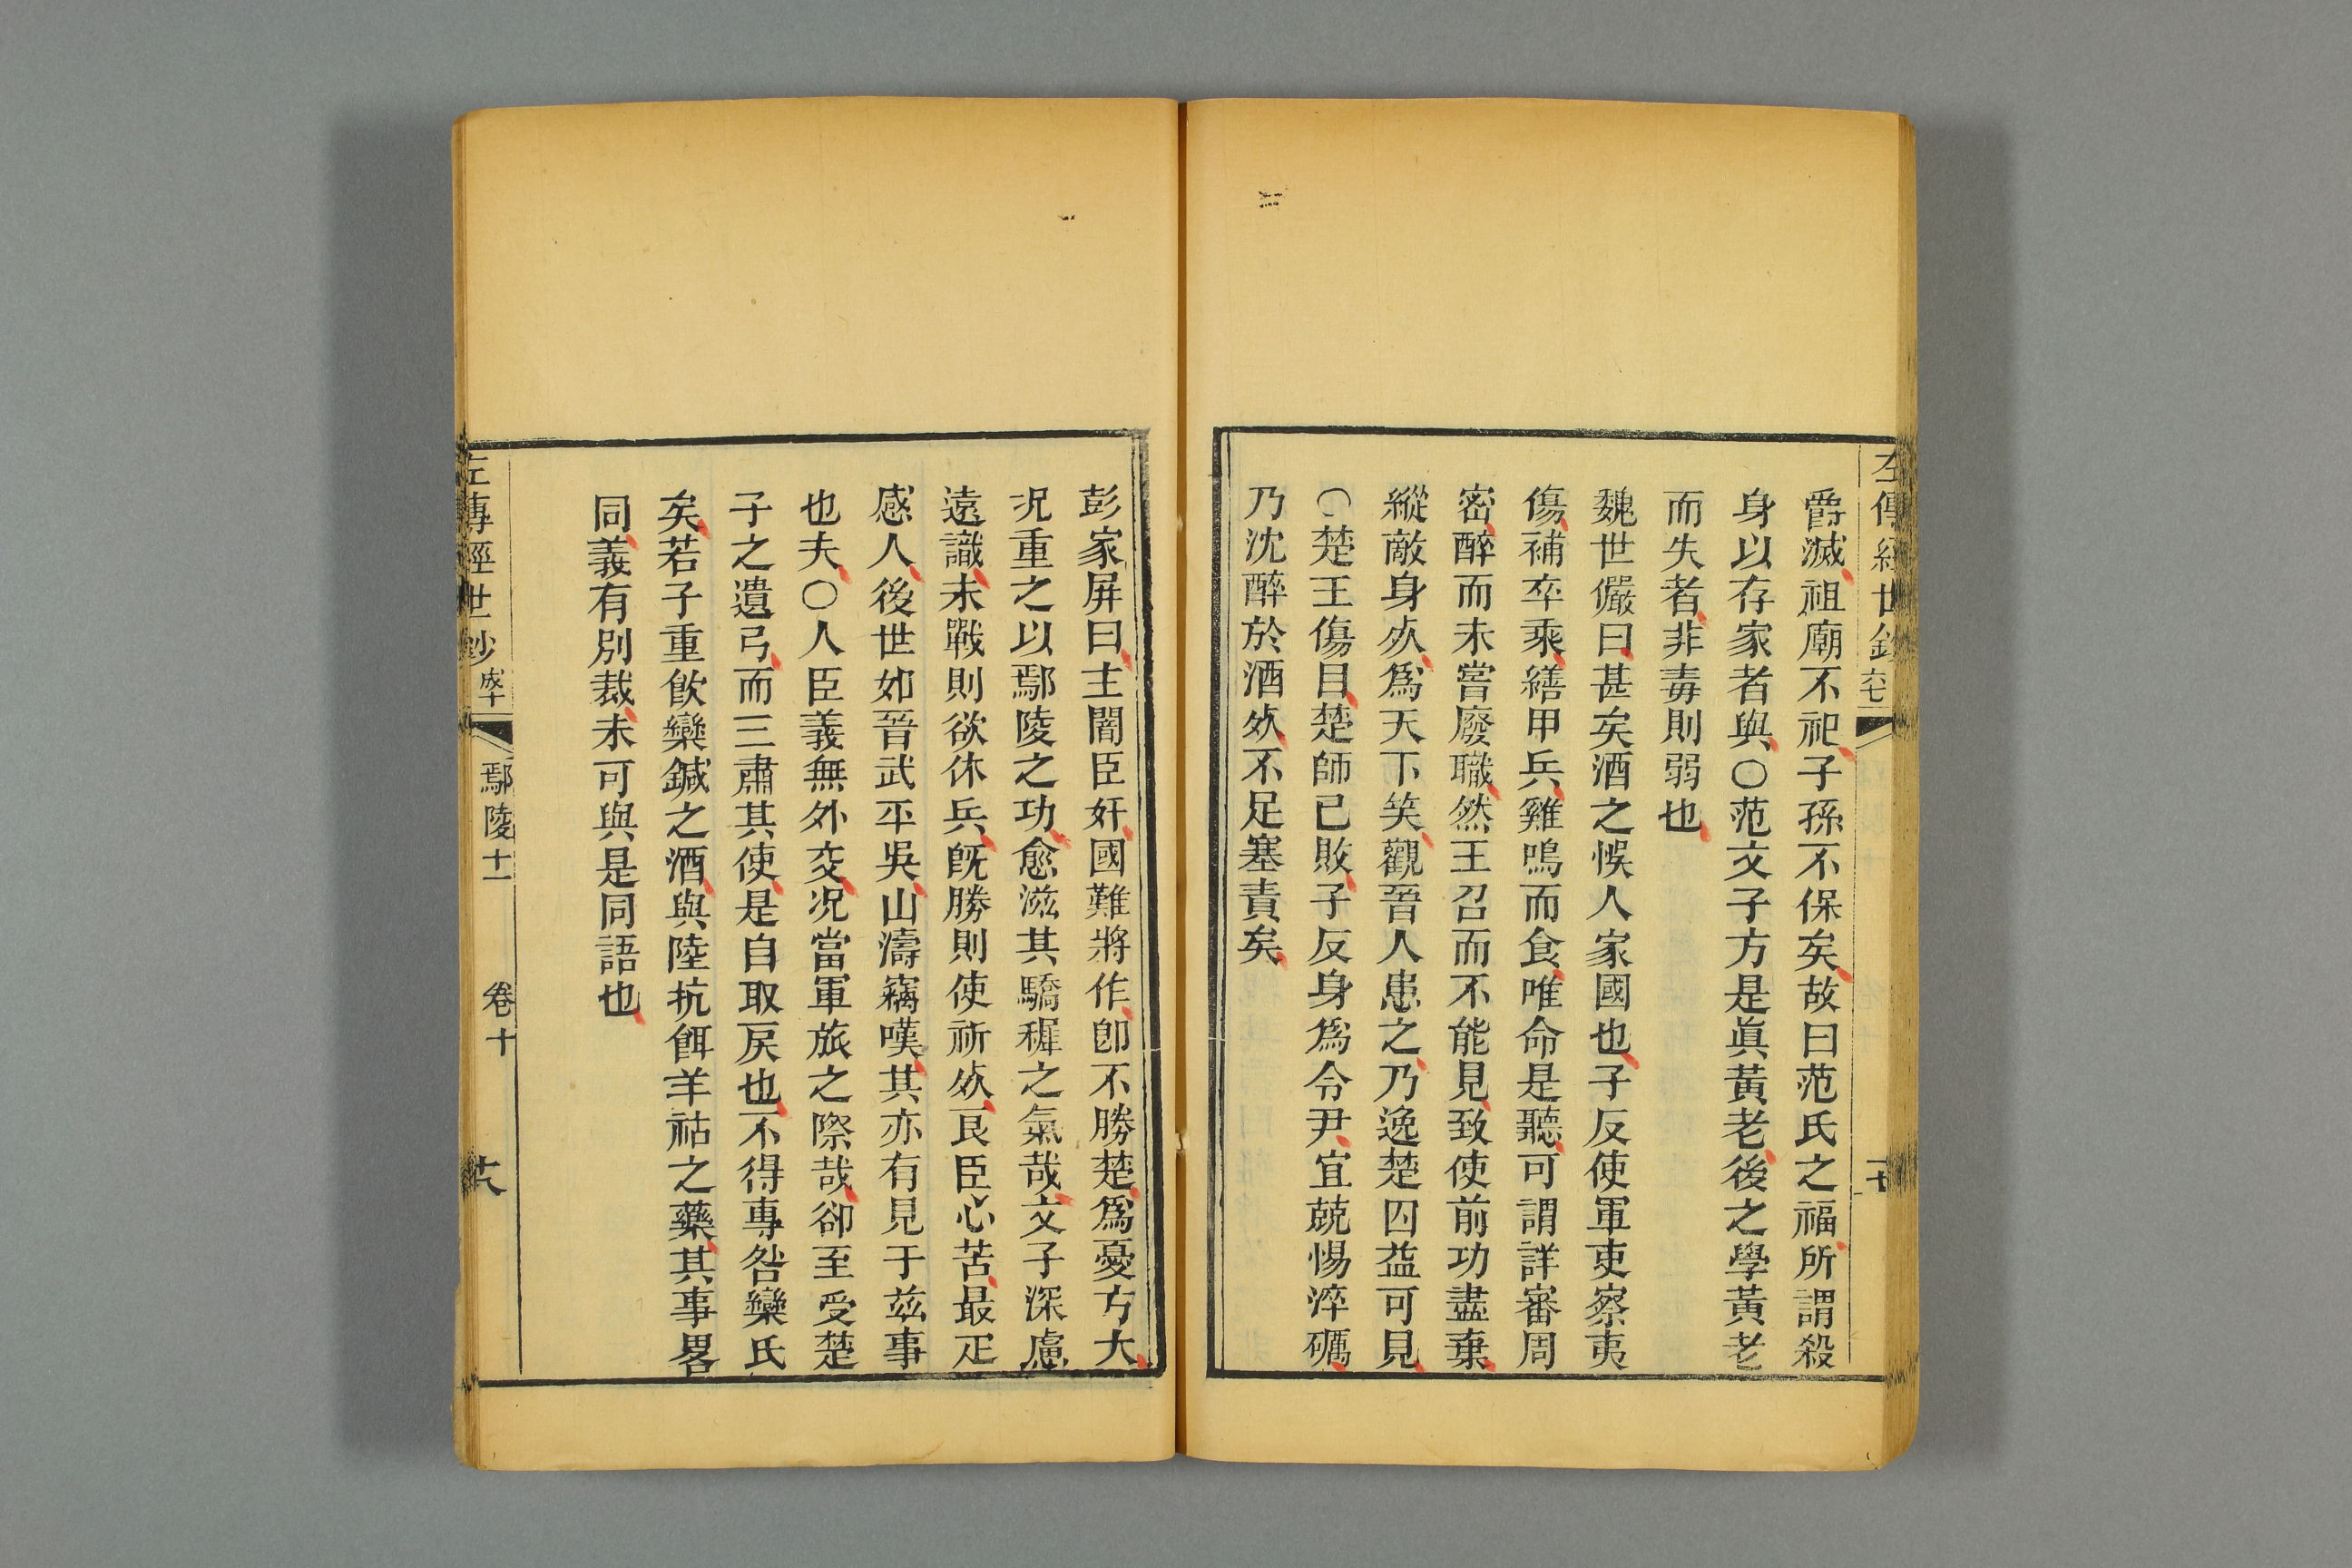 爵滅祖廟不祀子孫不保矣故曰范氏之福所謂殺
身以存家者與〇范文子方是眞黃老後之學黃老
而失者非毒則弱也
魏世儼曰甚矣酒之悞人家國也子反使軍吏察夷
傷補卒乘繕甲兵雞鳴而食唯命是聽可謂詳審周
密醉而未嘗廢職然王召而不能見致使前功盡棄
縱敵身𣦸爲天下笑觀晉人患之乃逸楚囚益可見
〇楚王傷目楚師已敗子反身爲令尹宜兢惕淬礪
乃沈醉於酒𣦸不足塞責矣
彭家屏曰主闇臣奸國難將作卽不勝楚爲憂方大
况重之以鄢陵之功愈滋其驕穉之氣哉文子深慮
遠識未戰則欲休兵旣勝則使祈𣦸良臣心苦最足
感人後世如晉武平吳山濤竊嘆其亦有見于兹事
也夫〇人臣義無外交况當軍旅之際哉郤至受楚
子之遺弓而三肅其使是自取戾也不得專咎欒氏
矣若子重飲欒鍼之酒與陸抗餌羊祜之藥其事畧
同義有別裁未可與是同語也
左傳經世鈔 成十 鄢陵十一 卷十 十八